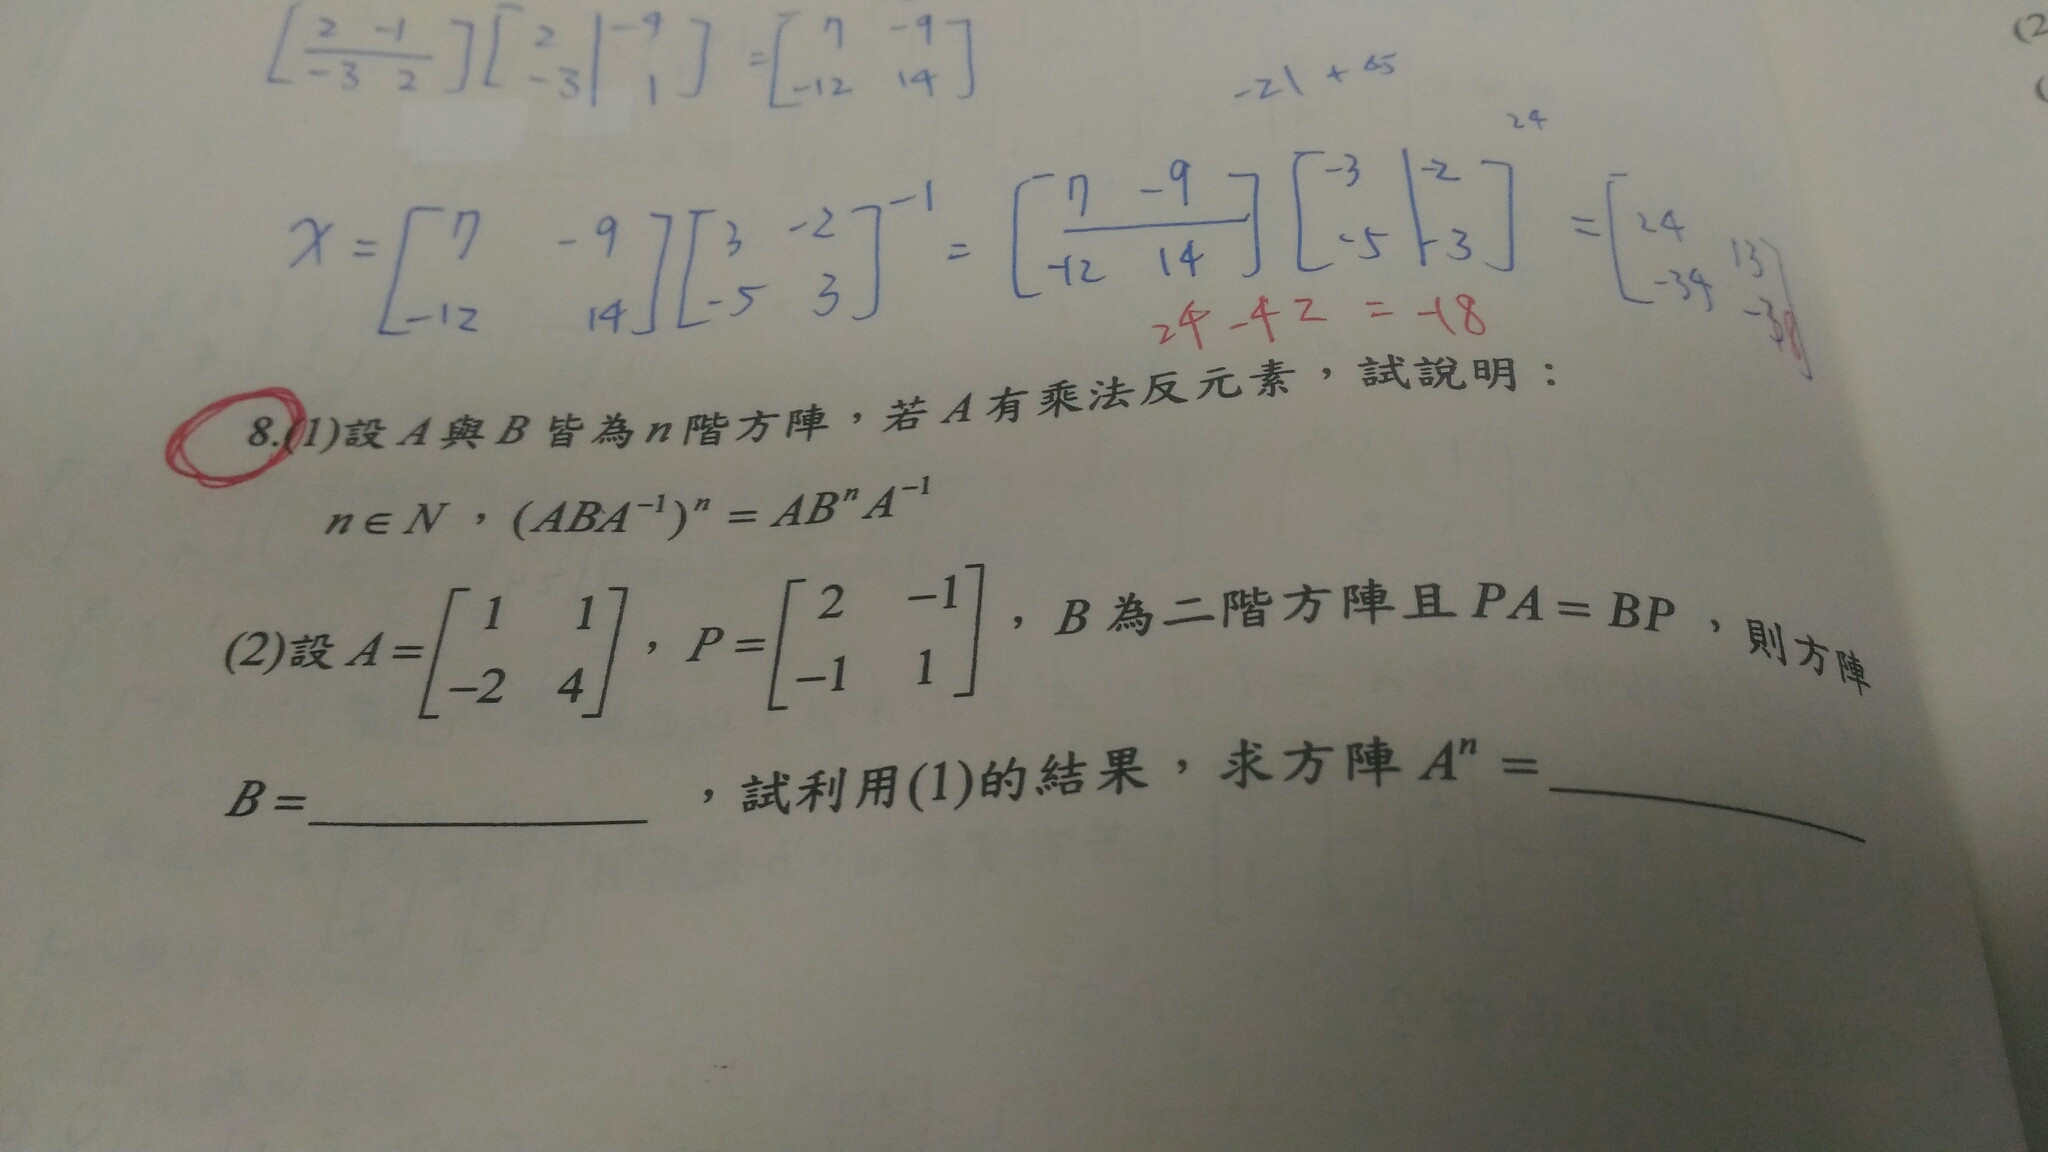 [2 -1 / -3 2] [2 -9 / -3 1] = [7 -9 / -12 14]
-21 + 45
24
x = [7 -9 / -12 14] [3 -2 / -5 3]⁻¹ = [7 -9 / -12 14] [-3 -2 / -5 -3] = [24 13 / -34 -18]
24 - 42 = -18
8.(1)設 A 與 B 皆為 n 階方陣，若 A 有乘法反元素，試說明：
n ∈ N ，(ABA⁻¹)ⁿ = ABⁿA⁻¹
(2)設 A = [1 1 / -2 4]，P = [2 -1 / -1 1]，B 為二階方陣且 PA = BP，則方陣
B = ________ ，試利用(1)的結果，求方陣 Aⁿ = ________
(2
(